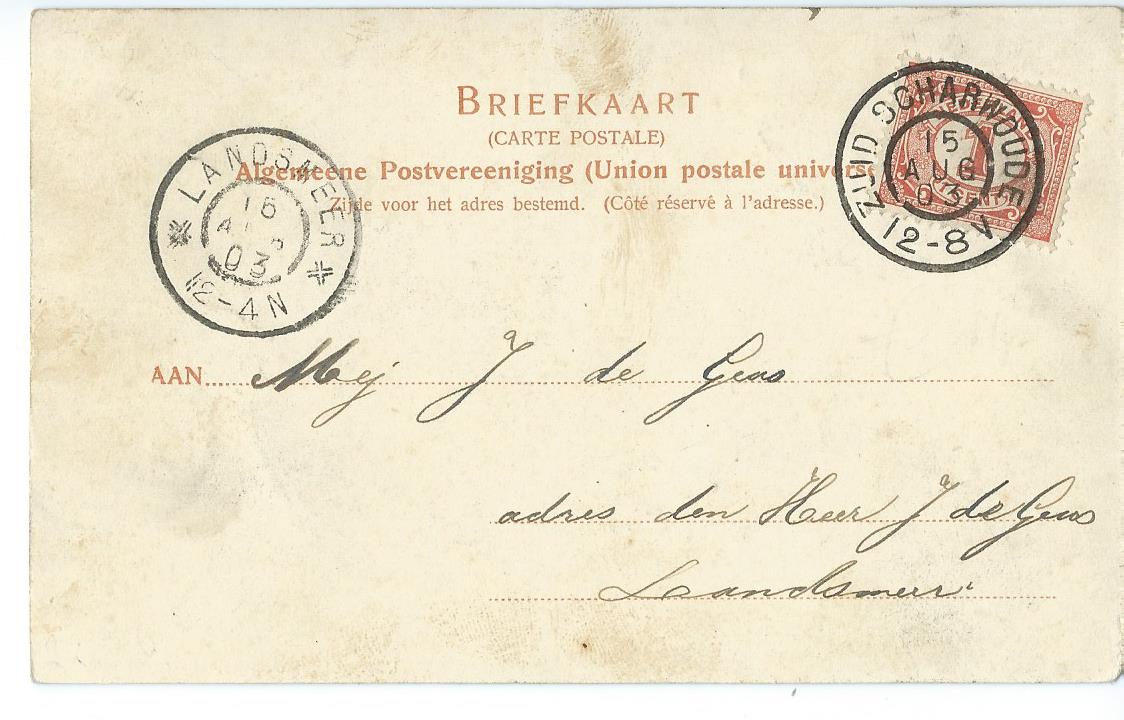 BRIEFKAART
(CARTE POSTALE)
Algemeene Postvereeniging (Union postale univers
Zijde voor het adres bestemd. (Côté réservé à l'adresse.)
ZUID SCHARWOUDE
15
AUG
03
12-8V
LANDSMEER
16
03
2-4N
AAN Mej J de Geus
adres den Heer J de Geus
Landsmeer